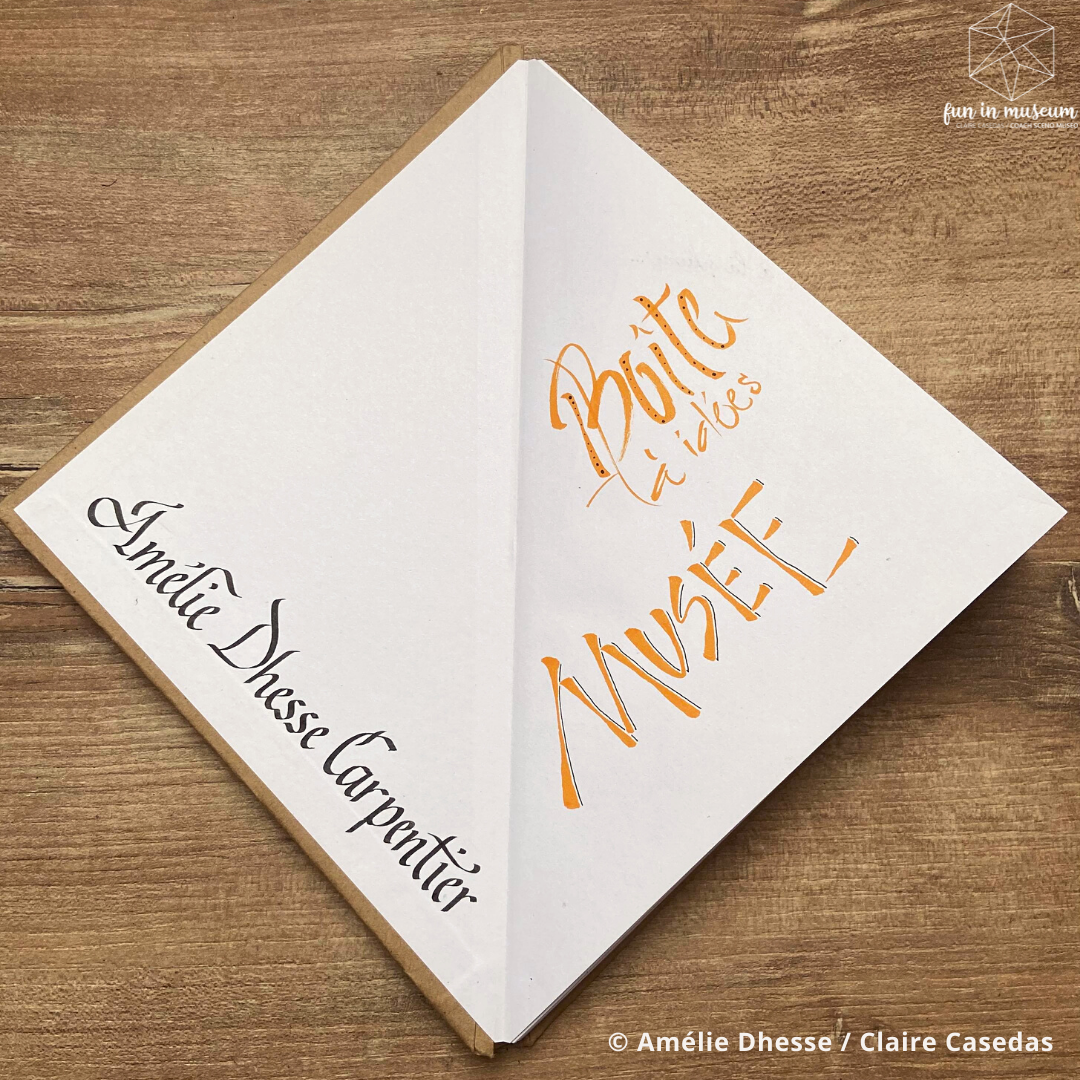 fun in museum
CLAIRE CASEDAS / COACH SCÉNO MUSÉO
Boîte
à idées
MUSÉE
Amélie Dhesse Carpentier
© Amélie Dhesse / Claire Casedas